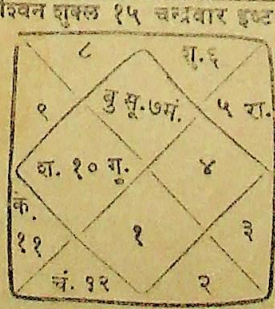 श्विन शुक्ल १५ चन्द्रवार इष्ट
८ शु. ६
९ बु सू. ७ मं. ५ रा.
श. १० गु. ४
के.
११ १ ३
चं. १२ २